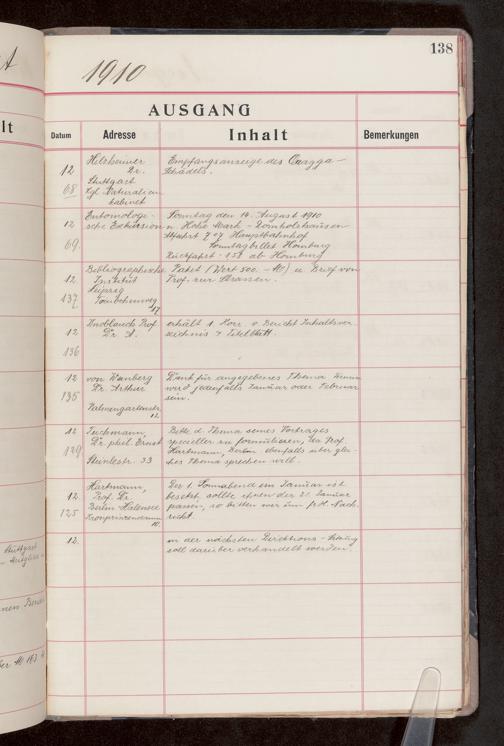 138
1910
AUSGANG
Datum Adresse Inhalt Bemerkungen
12 Hilzheimer Empfangsanzeige des Quagga-
Dr. Schädels.
68 Stuttgart
Kgl. Naturalien
kabinet
Entomologi- Sonntag den 14. August 1910
12 sche Exkursion n. Hohe Mark -
Abfahrt 7 07 Hauptbahnhof
69 Sonntagbillet Homburg
Rückfahrt ab Homburg
Bibliographisches Paket (Wert 500.- M) u. Brief von
12 Institut Prof. zur Strassen.
137 Leipzig
Täubchenweg
17
Knoblauch Prof. erhält 1 Korr. v. Bericht Inhaltsver
12 Dr. A. zeichnis & Titelblatt.
136
12 von Weinberg Dank für angegebenes Thema
135 Dr. Arthur wird jedenfalls Januar oder Februar
sein.
Palmengartenstr.
12.
12 Teichmann, Bitte d. Thema seines Vortrages
129 Dr. phil. Ernst specieller zu formulieren, da Prof.
Hartmann, Berlin ebenfalls über glei-
Steinlestr. 33 ches Thema sprechen will.
Hartmann, Der 1. Sonnabend im Januar ist
12. Prof. Dr. besetzt sollte Ihnen der 21. Januar
125 Berlin Halensee passen, so bitten wir um frdl. Nach
Kronprinzendamm richt.
12. in der nächsten Direktions-Sitzung
soll darüber verhandelt werden.
Stuttgart